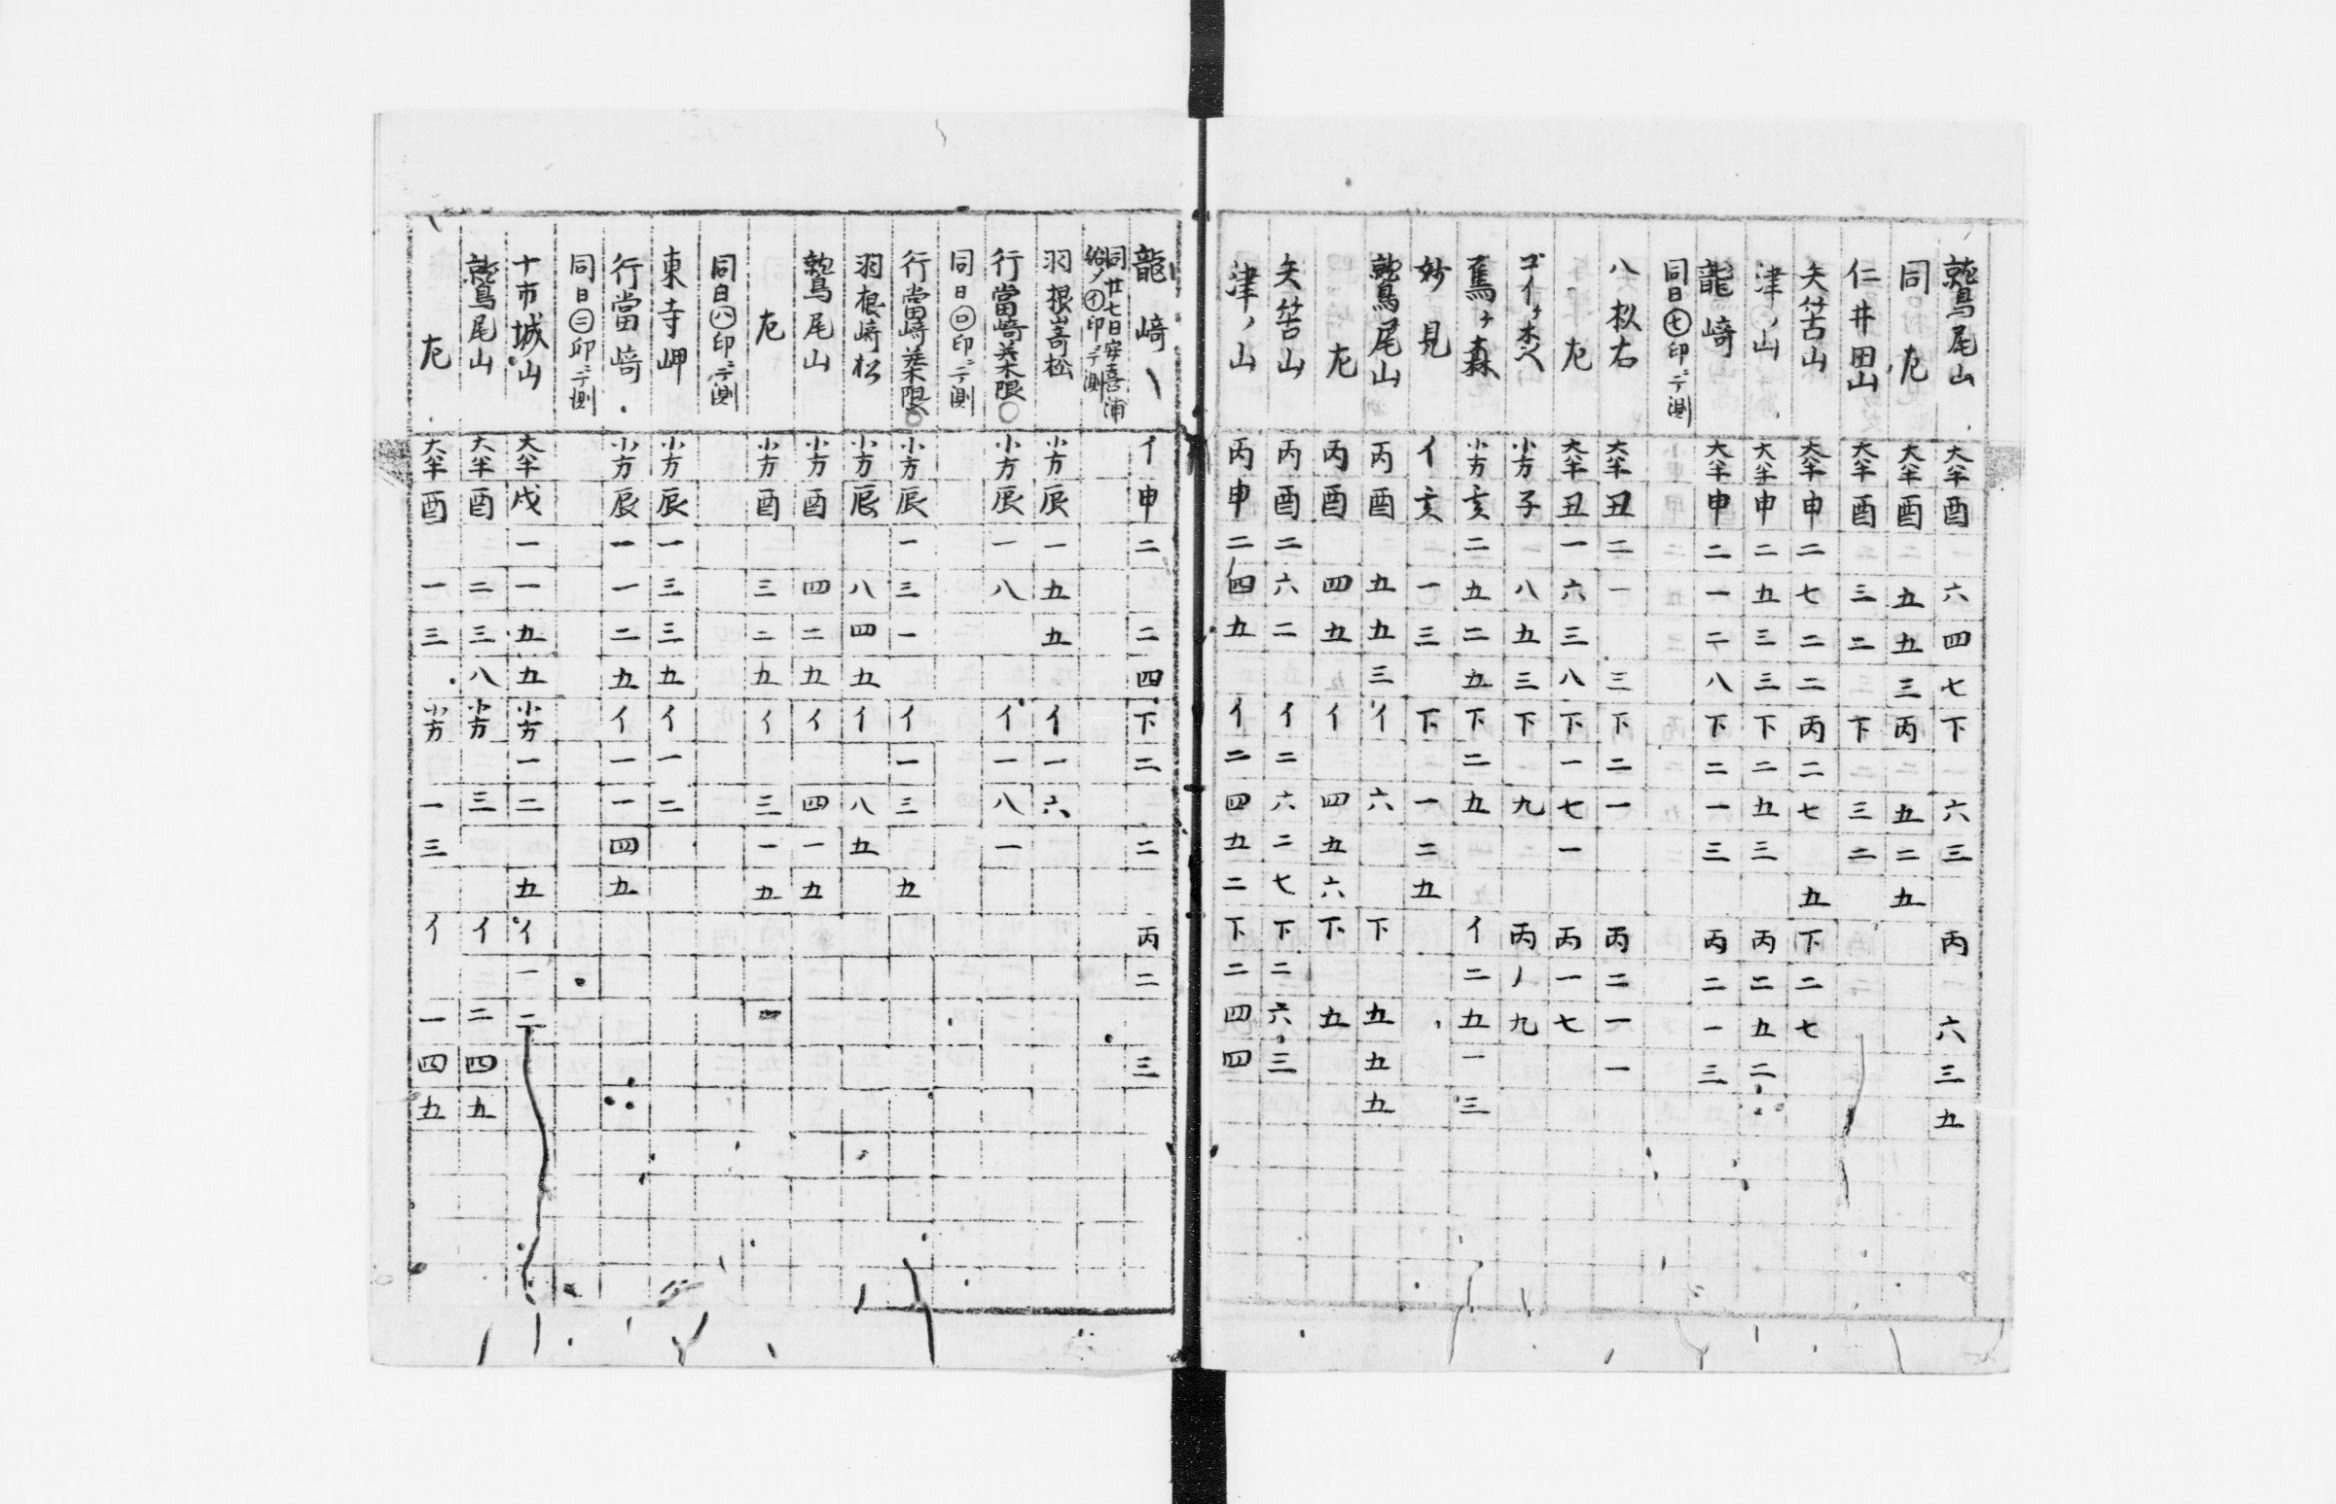 鷲尾山 大半酉 六四七下 六三 丙 六三五
同尤 大半酉 五五三丙 五二五
仁井田山 大半酉 三二 下 三二
矢筈山 大半申二七二二丙二七 五下二七
津ノ山 大半申二五三三下二五三 丙二五二
龍崎 大半申二一二八下二一三 丙二一三
同日㊆印ニテ測
八杦右 大半丑二一 三下二一 丙二一一
尤 大半丑一六三八下一七一 丙一七
ゴイケ 小方子 八五三下 九 丙ノ九
蔦ヶ森 小方亥二五二五下二五 イ二五一三
妙見 イ亥 一三 下 一二五
鷲尾山 丙酉 五五三イ 六 下 五五五
尤 丙酉 四五 イ 四五六下 五
矢筈山 丙酉二六二 イ二六二七下二六三
津ノ山 丙申二四五 イ二四五二下二四四
龍崎 イ申二 二四下二 二 丙二 三
同廿七日安喜浦
ノ㋑印ニテ測
羽根崎松 小方辰一五五 イ一六
行當崎 小方辰一八 イ一八一
同日㋺印ニテ測
行當崎 小方辰一三一 イ一三 五
羽根崎松 小方辰 八四五イ 八五
鷲尾山 小方酉 四二五イ 四一五
尤 小方酉 三二五イ 三一五
同日㋩印ニテ測
東寺岬 小方辰一三三五イ一二
行當崎 小方辰一一二五イ一一四五
同日㊁印ニテ測
十市城山 大半戌一一五五小方一二 五イ一二
鷲尾山 大半酉 二三八小方 三 イ 二四五
尤 大半酉 一三 小方 一三 イ 一四五